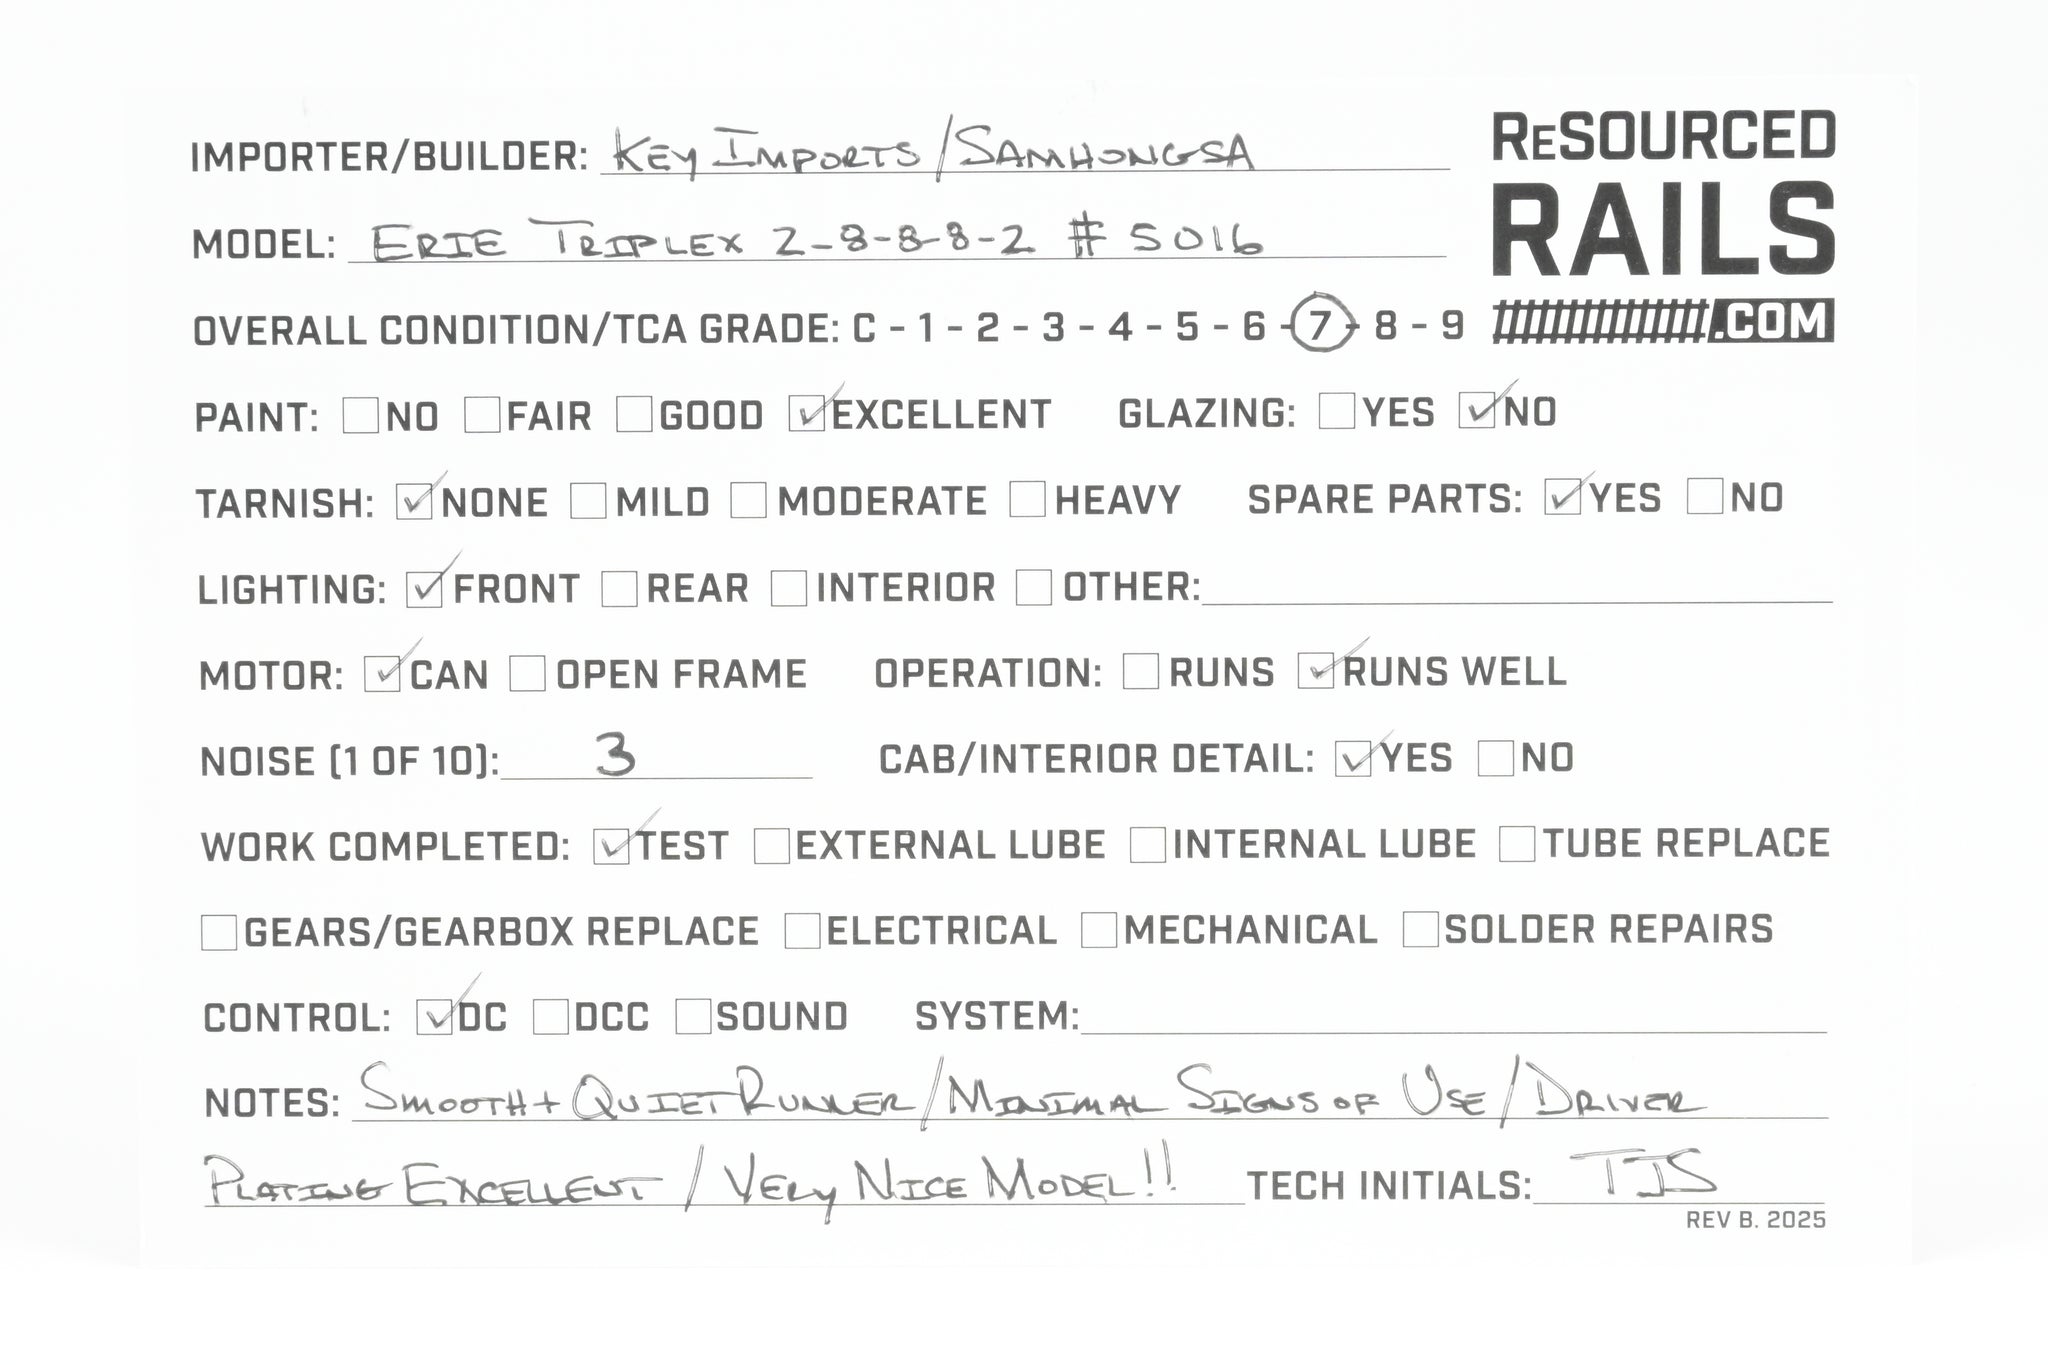 IMPORTER/BUILDER: KEY IMPORTS/SAMHONGSA
RESOURCED
RAILS
.COM
MODEL: ERIE TRIPLEX 2-8-8-8-2 # 5016
OVERALL CONDITION/TCA GRADE: C - 1 - 2 - 3 - 4 - 5 - 6 - 7 - 8 - 9
PAINT: NO FAIR GOOD EXCELLENT GLAZING: YES NO
TARNISH: NONE MILD MODERATE HEAVY SPARE PARTS: YES NO
LIGHTING: FRONT REAR INTERIOR OTHER:
MOTOR: CAN OPEN FRAME OPERATION: RUNS RUNS WELL
NOISE (1 OF 10): 3 CAB/INTERIOR DETAIL: YES NO
WORK COMPLETED: TEST EXTERNAL LUBE INTERNAL LUBE TUBE REPLACE
GEARS/GEARBOX REPLACE ELECTRICAL MECHANICAL SOLDER REPAIRS
CONTROL: DC DCC SOUND SYSTEM:
NOTES: SMOOTH + QUIET RUNNER/MINIMAL SIGNS OF USE/DRIVER
PLATING EXCELLENT/VERY NICE MODEL!! TECH INITIALS: TJS
REV B. 2025